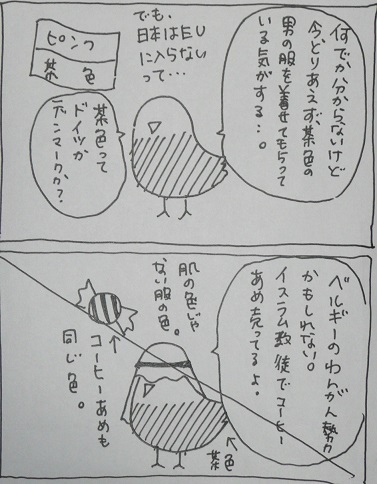 何でか分からないけど
今、とりあえず、茶色の
男の服を着せてもらって
いる気がする…。
でも、
日本はEU
に入らない
って…
ピンク
茶色
茶色って
ドイツか
デンマークか?
ベルギーのわんがん勢力
かもしれない。
イスラム教徒でコーヒー
あめ売ってるよ。
肌の色じゃ
ない服の色。
コーヒーあめも
同じ色。
茶色